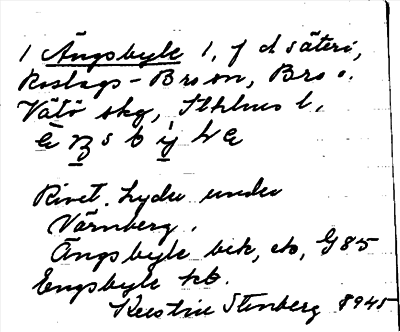 1 Ängsbyle 1, f d säteri,
Roslags-Bro sn, Bro o.
Vätö skg, Sthlms l.
s b
Rivet. Lyder under
Värnberg.
Ängsbyle bek, eb, G85
Engsbyle kb.
Kerstin Stenberg 8945